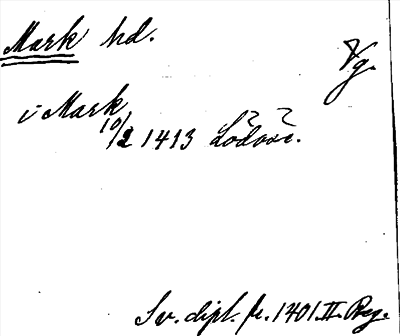 Mark hd.
Vg.
i Mark
10/2 1413 Lödöse.
Sv. dipl. fr. 1401 II. Reg.